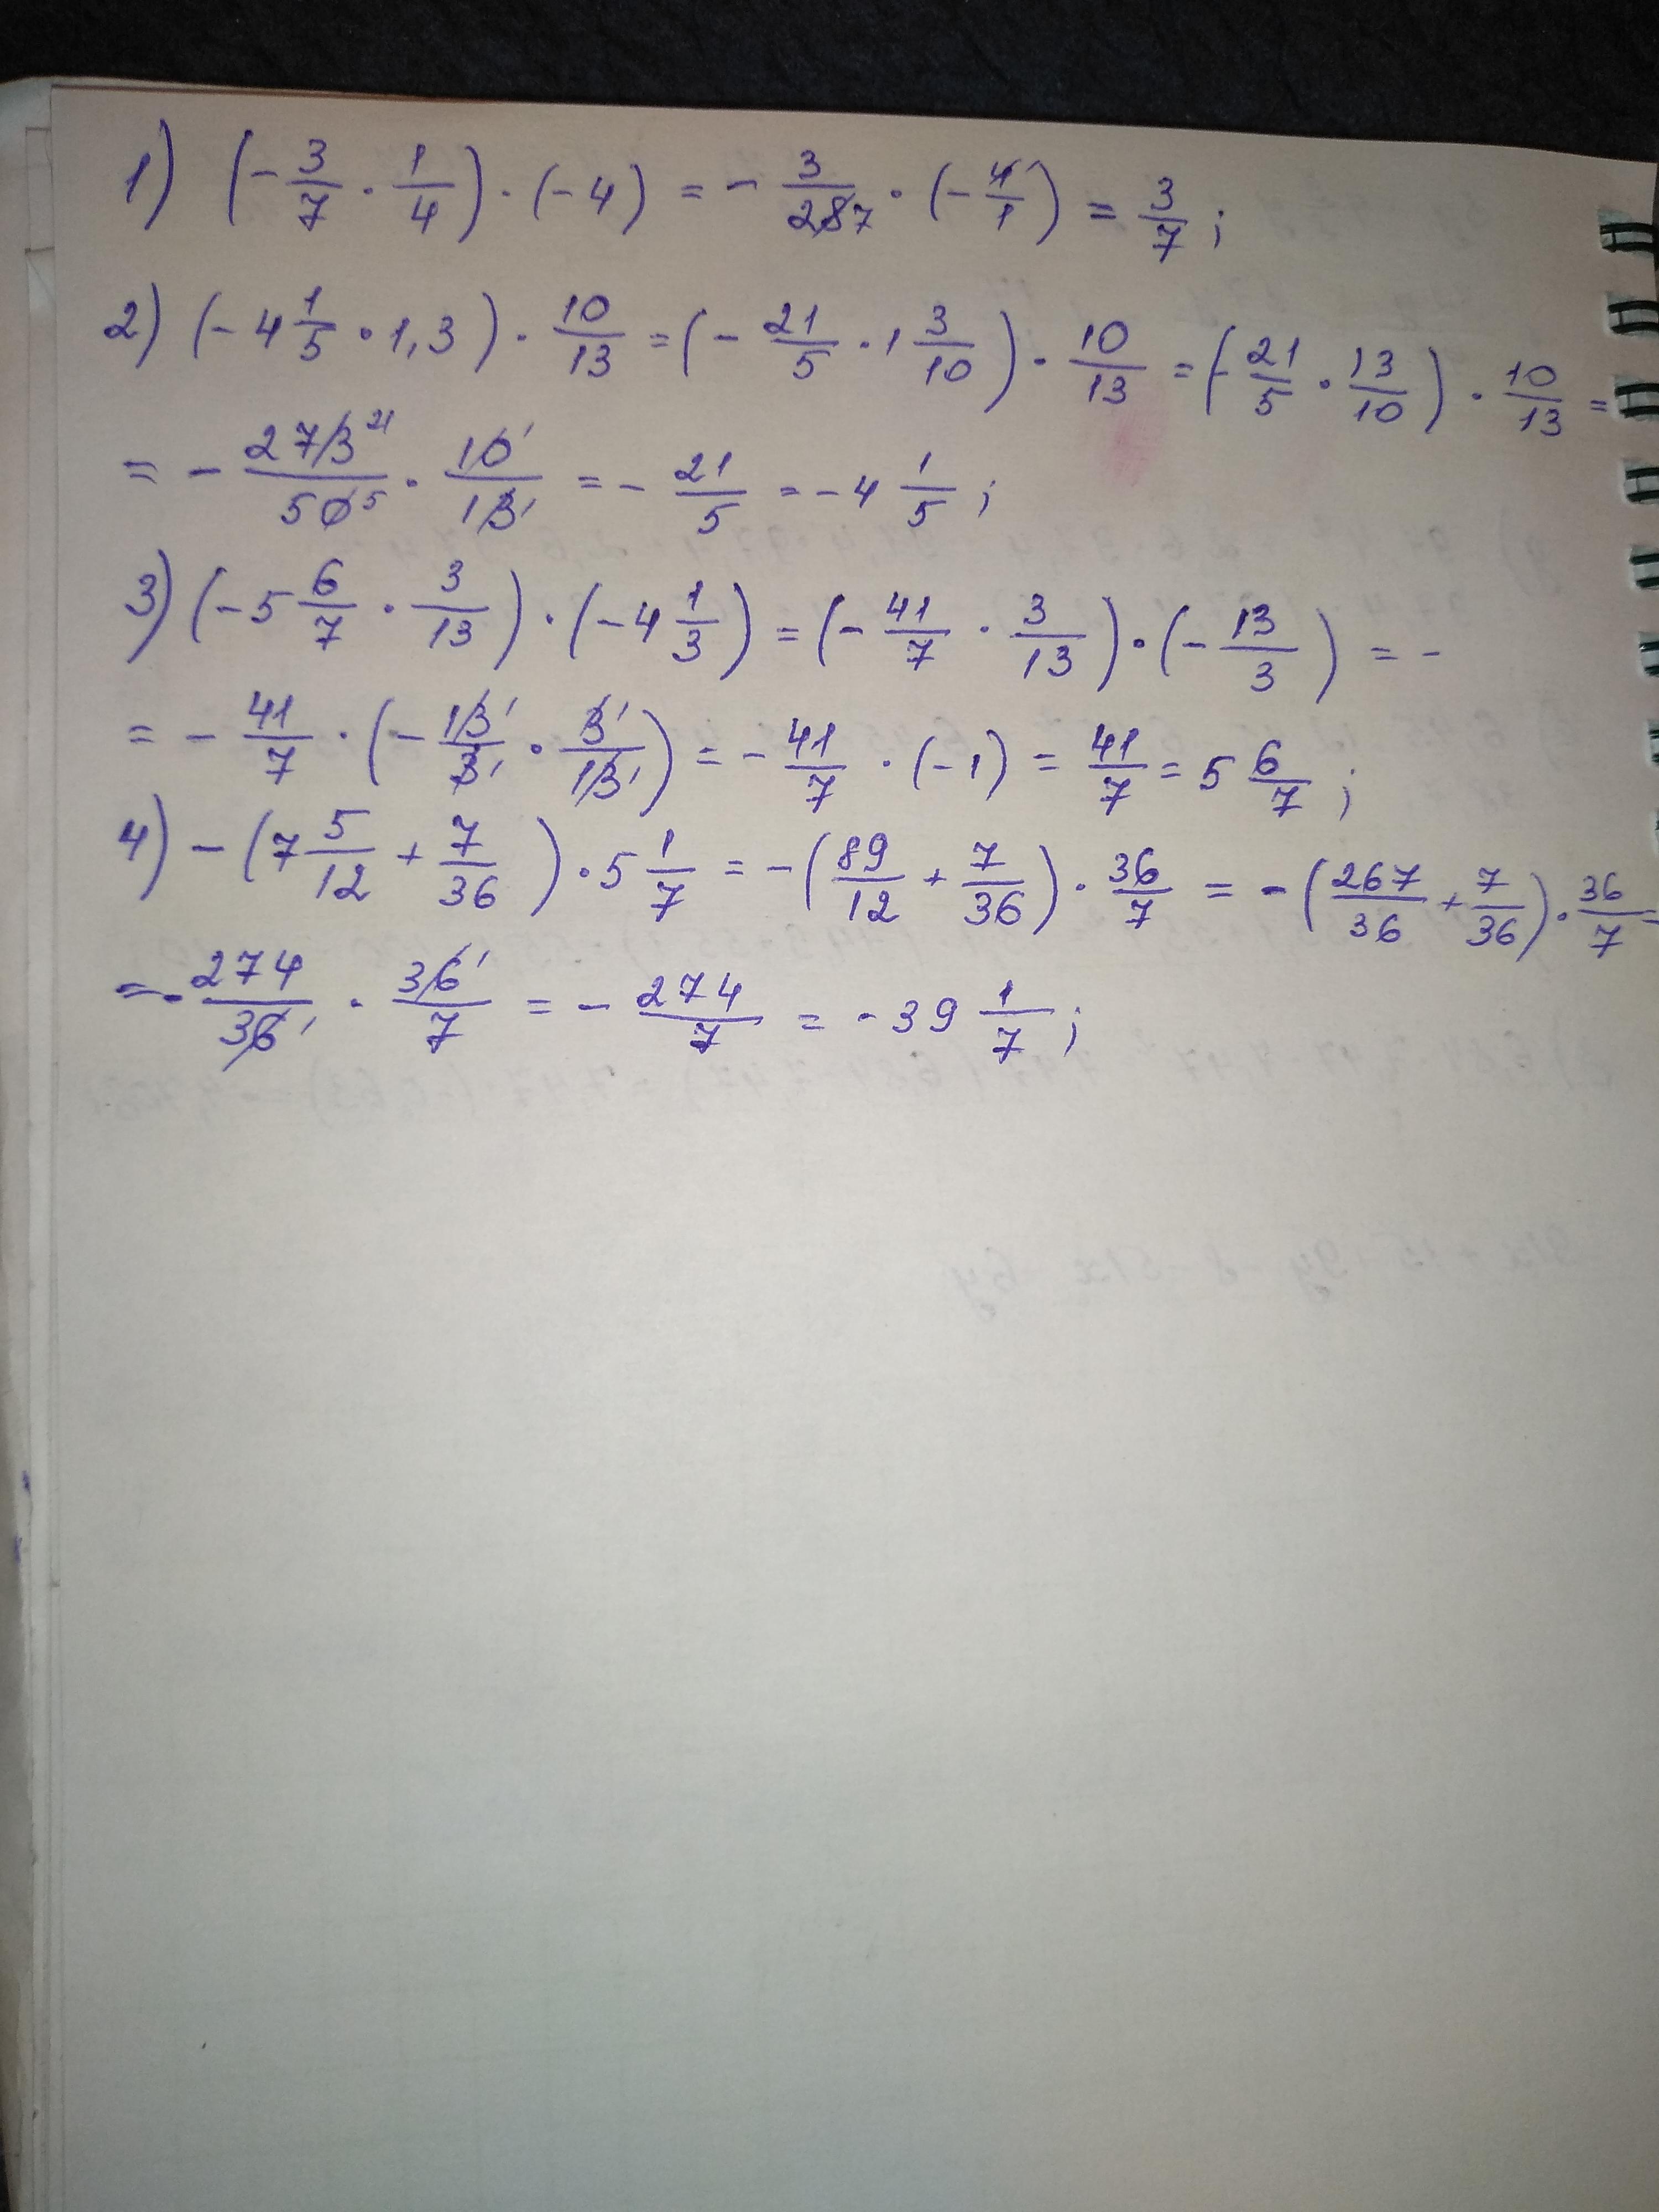 1) (- 3/7 · 1/4) · (-4) = - 3/28 7 · (- 4/1) = 3/7 ;
2) (- 4 1/5 · 1,3) · 10/13 = (- 21/5 · 1 3/10) · 10/13 = (- 21/5 · 13/10) · 10/13 =
= - 273 21/50 5 · 10 1/13 1 = - 21/5 = - 4 1/5 ;
3) (- 5 6/7 · 3/13) · (- 4 1/3) = (- 41/7 · 3/13) · (- 13/3) = -
= - 41/7 · (- 13 1/3 1 · 3 1/13 1) = - 41/7 · (-1) = 41/7 = 5 6/7 ;
4) - (7 5/12 + 7/36) · 5 1/7 = - (89/12 + 7/36) · 36/7 = - (267/36 + 7/36) · 36/7 =
= - 274/36 1 · 36 1/7 = - 274/7 = - 39 1/7 ;